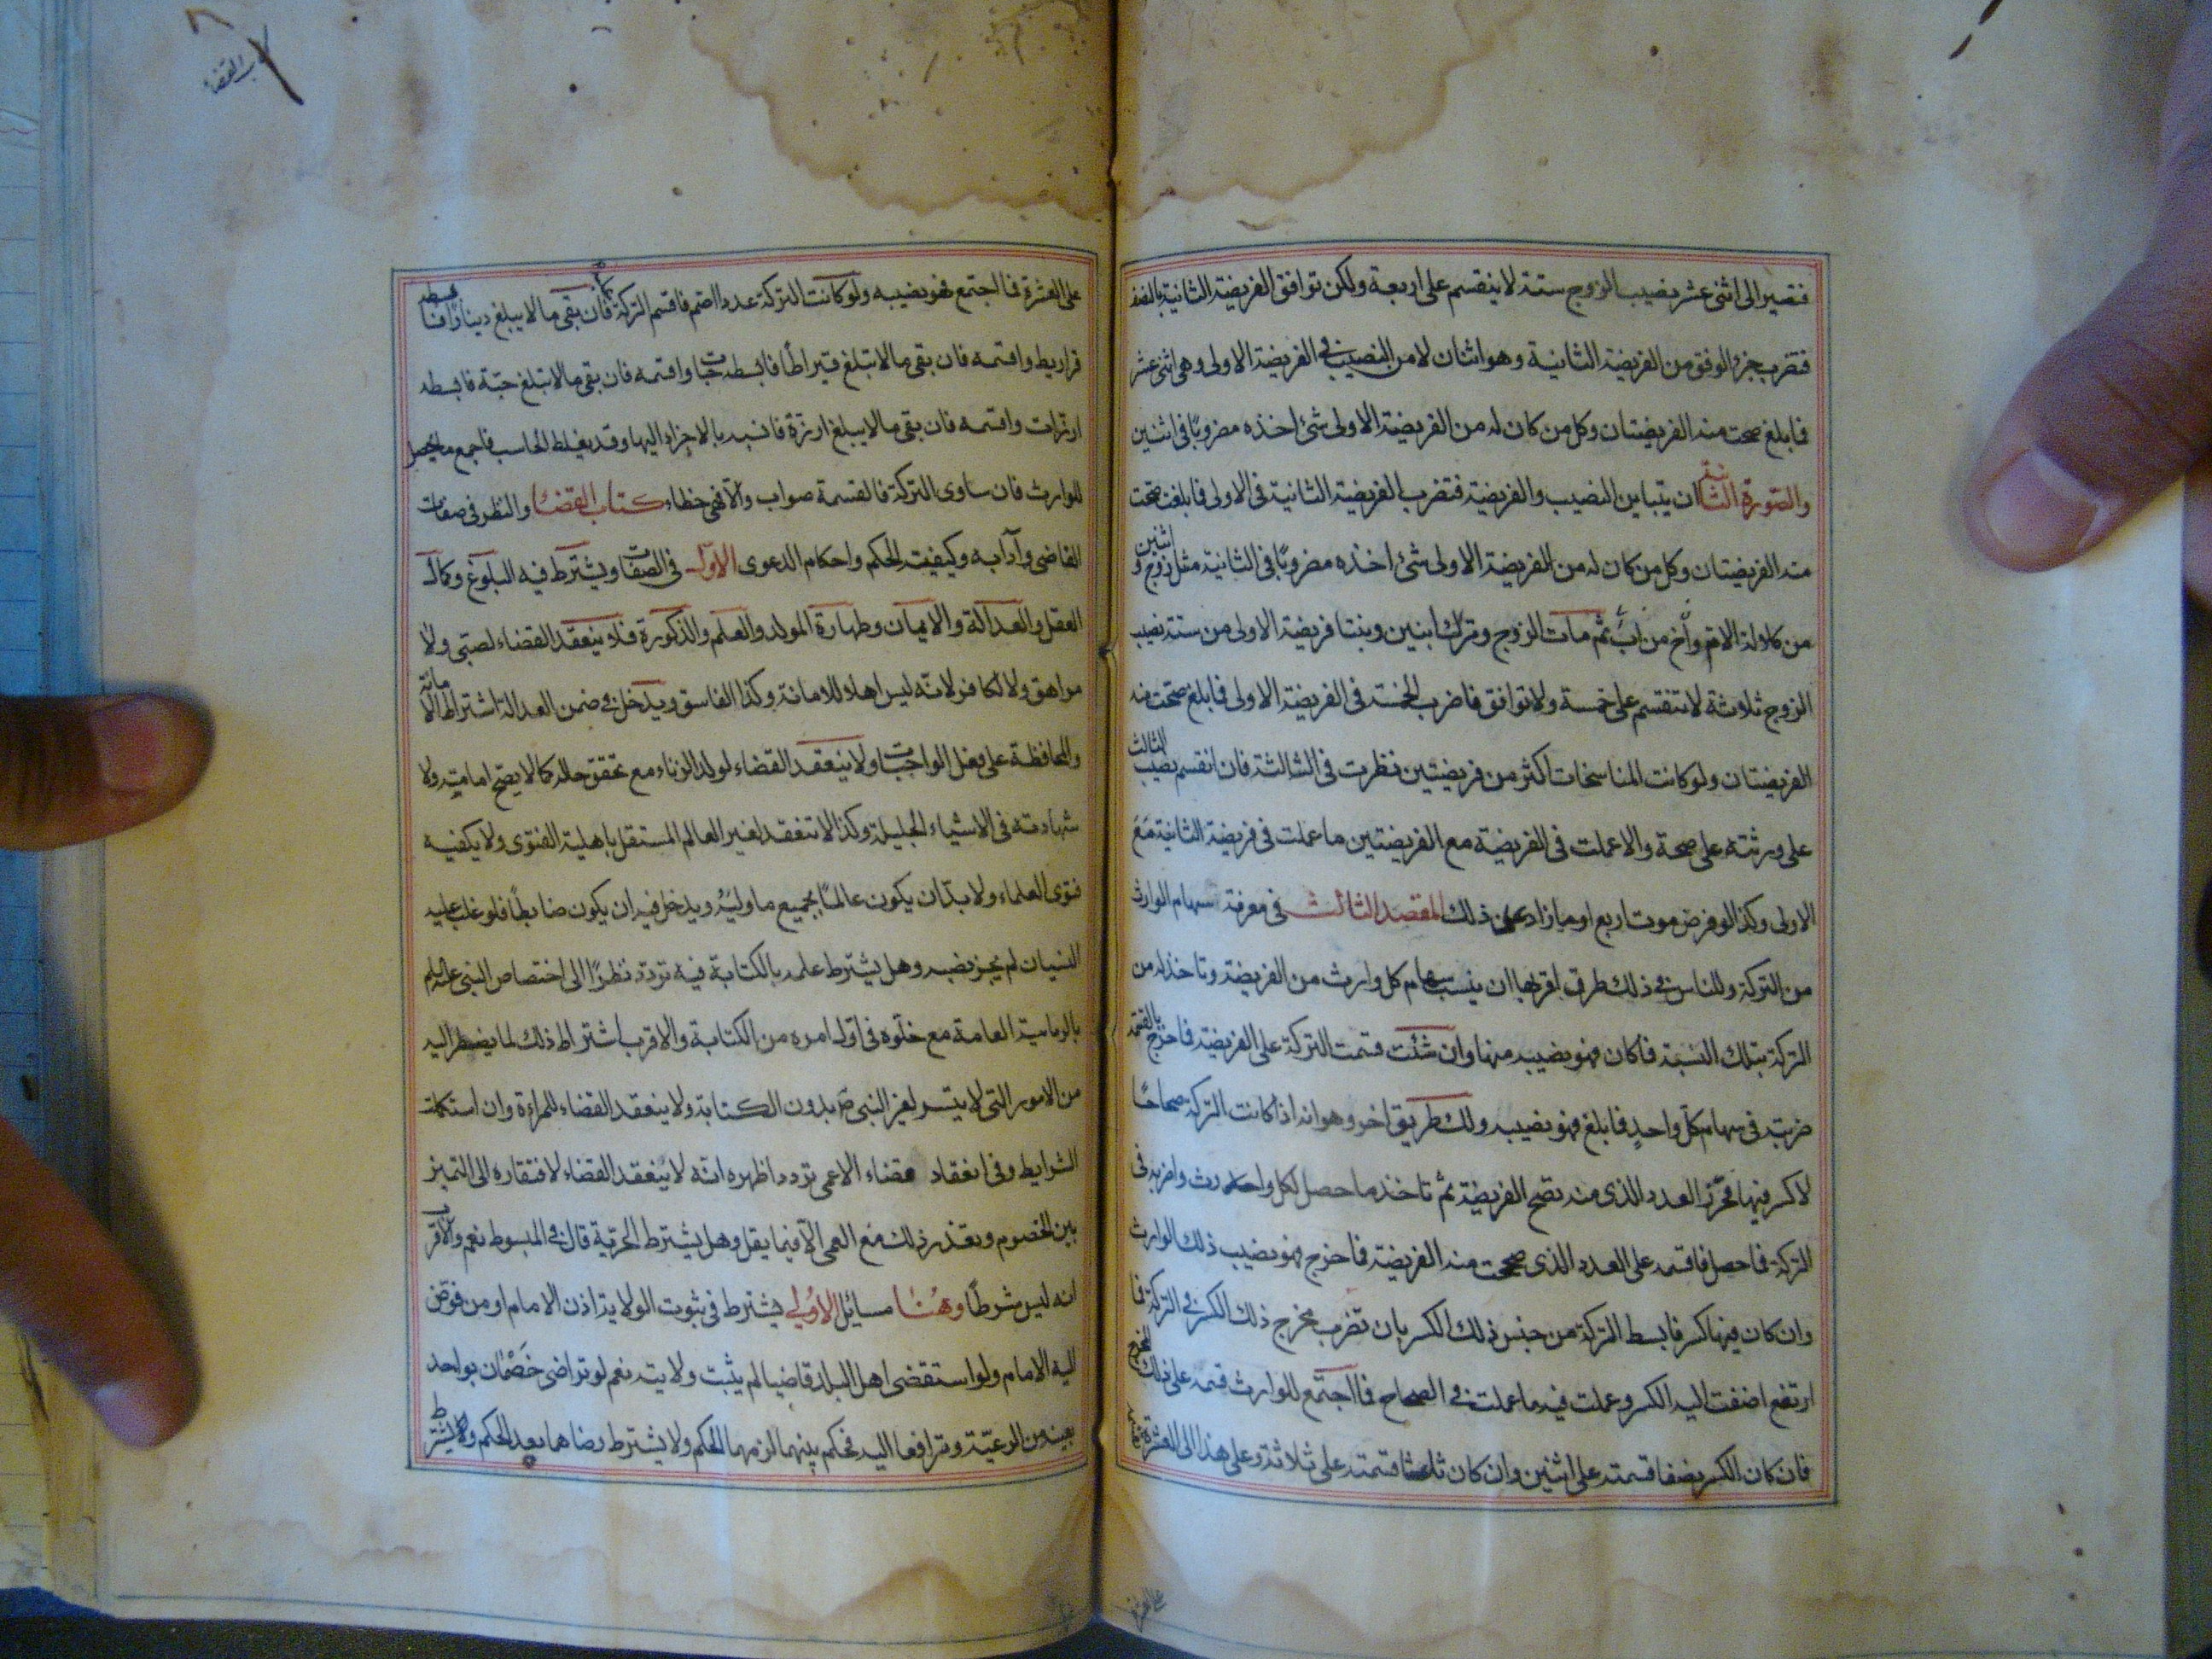 فتصير الى اثنى عشر نصيب الزوج ستة لا ينقسم على اربعة ولكن توافق الفريضة الثانية بالنصف
فتضرب جزء الوفق من الفريضة الثانية وهو اثنان لا من النصيب في الفريضة الاولى وهى اثنى عشر
فما بلغ صحت منه الفريضتان وكل من كان له من الفريضة الاولى شئ اخذه مضروبًا فى اثنين
والصورة الثالثة ان يتباين النصيب والفريضة فتضرب الفريضة الثانية فى الاولى فما بلغت صحت
منه الفريضتان وكل من كان له من الفريضة الاولى شئ اخذه مضروبًا فى الثانية مثل زوج و اثنين
من كلالة الام وأخ من اب ثم مات الزوج وترك ابنين وبنتا فريضة الاولى من ستة نصيب
الزوج ثلاثة لا تنقسم على خمسة ولا توافق فاضرب الخمسة فى الفريضة الاولى فما بلغ صحت منه
الفريضتان ولو كانت المناسخات اكثر من فريضتين نظرت فى الثالثة فان انقسم نصيب الثالث
على ورثته على صحة والا عملت فى الفريضة مع الفريضتين ما عملت فى فريضة الثانية مع
الاولى وكذا لو فرض موت اربع او ما زاد على ذلك المقصد الثالث فى معرفة سهام الوارث
من التركة وللناس في ذلك طرق اقربها ان ينسب سهام كل وارث من الفريضة وتاخذ له من
التركة بتلك النسبة فما كان فهو نصيبه منها وان شئت قسمت التركة على الفريضة فما خرج بالقسمة
ضربته فى سهام كل واحدٍ فما بلغ فهو نصيبه ولك طريق اخر وهو انه اذا كانت التركة صحاحًا
لا كسر فيها فحرّر العدد الذى منه تصح الفريضة ثم تاخذ ما حصل لكل وارث واضربه فى
التركة فما حصل فاقسمه على العدد الذى صححت منه الفريضة فما خرج فهو نصيب ذلك الوارث
وان كان فيها كسر فابسط التركة من جنس ذلك الكسر بان تضرب مخرج ذلك الكسر في التركة فما
ارتفع اضفت اليه الكسر وعملت فيه ما عملت في الصحاح فما اجتمع للوارث قسمته على ذلك المخرج
فان كان الكسر نصفا قسمته على اثنين وان كان ثلثا قسمته على ثلاثة وعلى هذا الى العشرة
على العشرة فما اجتمع فهو نصيبه ولو كانت التركة عددا اصم فاقسم التركة فان بقى ما لا يبلغ دينارًا فابسطه
قراريط واقسمه فان بقى ما لا تبلغ قيراطًا فابسطه حبّات واقسمه فان بقى ما لا تبلغ حبّة فابسطه
ارزات واقسمه فان بقى ما لا يبلغ ارزة فانسبه بالاجزاء اليها وقد يغلط الحاسب فاجمع ما يحصل
للوارث فان ساوى التركة فالقسمة صواب والا فهى خطاء كتاب القضاء والنظر فى صفات
القاضى وآدابه وكيفية الحكم واحكام الدعوى الاوّل فى الصفات ويشترط فيه البلوغ وكمال
العقل والعدالة والايمان وطهارة المولد والعلم والذكورة فلا ينعقد القضاء لصبّى ولا
مراهق ولا لكافر لانه ليس اهلا للامانة وكذا الفاسق ويدخل في ضمن العدالة اشتراط الامانة
والمحافظة على فعل الواجبات ولا ينعقد القضاء لولد الزناء مع تحقق حاله كما لا يصح امامته ولا
شهادته فى الاشياء الجليلة وكذا لا تنعقد لغير العالم المستقل باهلية الفتوى ولا يكفيه
فتوى العلماء ولا بدّ ان يكون عالمًا بجميع ما وليَه ويدخل فيه ان يكون ضابطًا فلو غلب عليه
النسيان لم يجز نصبه وهل يشترط علمه بالكتابة فيه تردد نظرًا الى اختصاص النبى عليه السلم
بالرياسة العامة مع خلّوه فى اوّل امره من الكتابة والاقرب اشتراط ذلك لما يضطر اليه
من الامور التى لا يتيسر لغير النبى ص بدون الكتابة ولا ينعقد القضاء للمراءة وان استكملت
الشرايط وفى انعقاد قضاء الاعمى تردد اظهره انّه لا ينعقد القضاء لافتقاره الى التميز
بين الخصوم وتعذر ذلك مع العمى الّا فيما يقل وهل يشترط الحرّية قال في المبسوط نعم والاقرب
انه ليس شرطًا وهُنٰا مسائل الأُولى يشترط فى ثبوت الولاية اذن الامام او من فوّض
اليه الامام ولو استقضى اهل البلد قاضيا لم يثبت ولايته نعم لو تراضى خَصْمٰان بواحد
بعينه من الرعيّة وترافعا اليه فحكم بينهما لزمهما الحكم ولا يشترط رضاهما بعد الحكم ولا يشترط